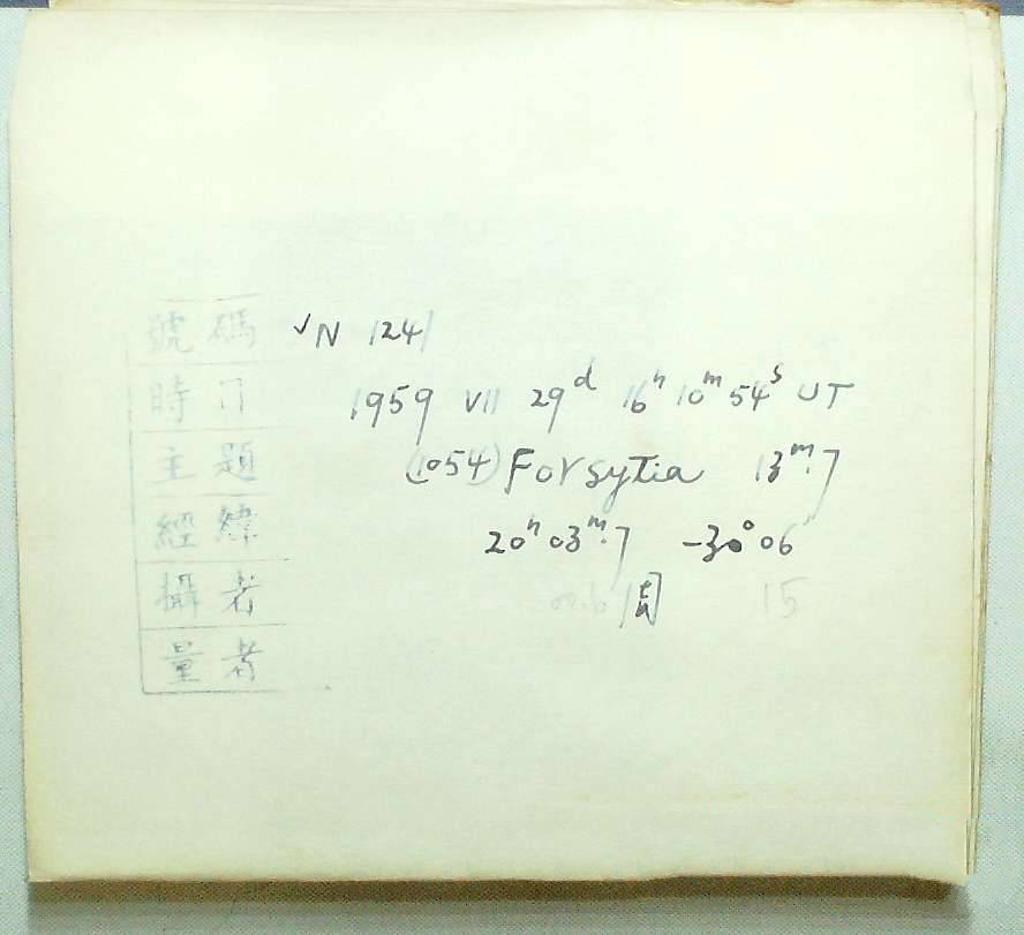 號碼 √N 1241
時 1959 VII 29ᵈ 16ʰ 10ᵐ 54ˢ UT
主題 (1054) Forsytia 13ᵐ.7
經緯 20ʰ 03ᵐ.7 -30° 06'
攝者 周 15
量者